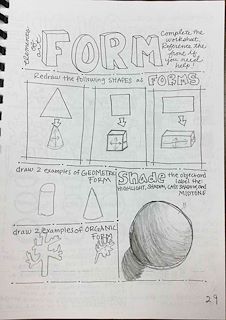 elements of art
FORM
Complete the
worksheet.
Reference the
front if
you need
help!
Redraw the following SHAPES as FORMS
draw 2 examples of GEOMETRIC
FORM
draw 2 examples of ORGANIC
FORM
Shade the object and
label the:
HIGHLIGHT, SHADOW, CAST SHADOW, and
MIDTONE
29